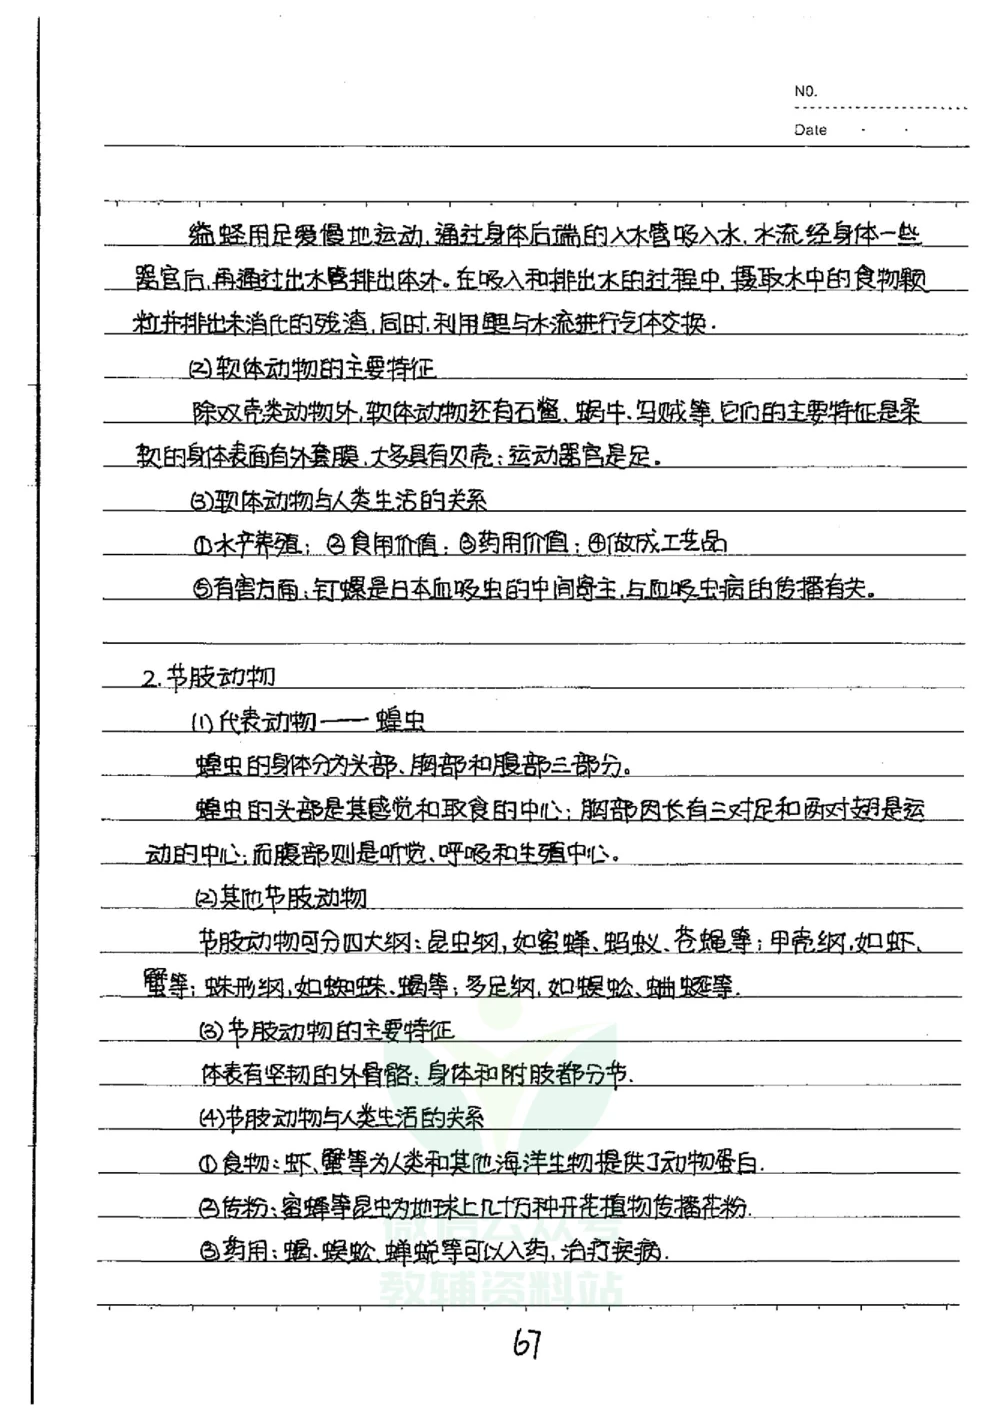 NO.
Date
缢蛏用足缓慢地运动,通过身体后端的入水管吸入水,水流经身体一些
器官后,再通过出水管排出体外。在吸入和排出水的过程中,摄取水中的食物颗
粒并排出未消化的残渣,同时,利用鳃与水流进行气体交换.
(2)软体动物的主要特征
除双壳类动物外,软体动物还有石鳖、蜗牛、乌贼等,它们的主要特征是柔
软的身体表面有外套膜,大多具有贝壳;运动器官是足。
(3)软体动物与人类生活的关系
①水产养殖;②食用价值;③药用价值;④做成工艺品
⑤有害方面:钉螺是日本血吸虫的中间寄主,与血吸虫病的传播有关。
2.节肢动物
(1)代表动物——蝗虫
蝗虫的身体分为头部、胸部和腹部三部分。
蝗虫的头部是其感觉和取食的中心;胸部因长有三对足和两对翅是运
动的中心;而腹部则是听觉、呼吸和生殖中心。
(2)其他节肢动物
节肢动物可分四大纲:昆虫纲,如蜜蜂、蚂蚁、苍蝇等;甲壳纲,如虾、
蟹等;蛛形纲,如蜘蛛、蝎等;多足纲,如蜈蚣、蚰蜒等.
(3)节肢动物的主要特征
体表有坚韧的外骨骼;身体和附肢都分节.
(4)节肢动物与人类生活的关系
①食物:虾、蟹等为人类和其他海洋生物提供了动物蛋白.
②传粉:蜜蜂等昆虫为地球上几十万种开花植物传播花粉.
③药用:蝎、蜈蚣、蝉蜕等可以入药,治疗疾病.
微信公众号
教辅资料站
67